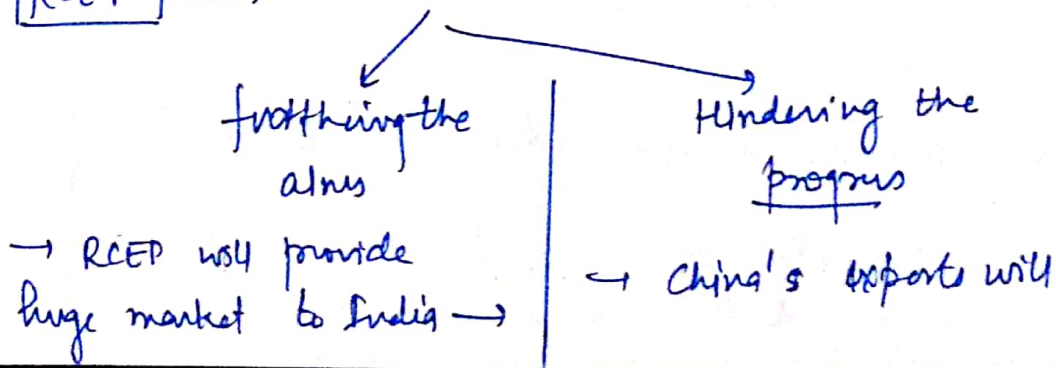 RCEP
furthering the
aims
→ RCEP will provide
huge market to India →
Hindering the
progress
→ China's exports will